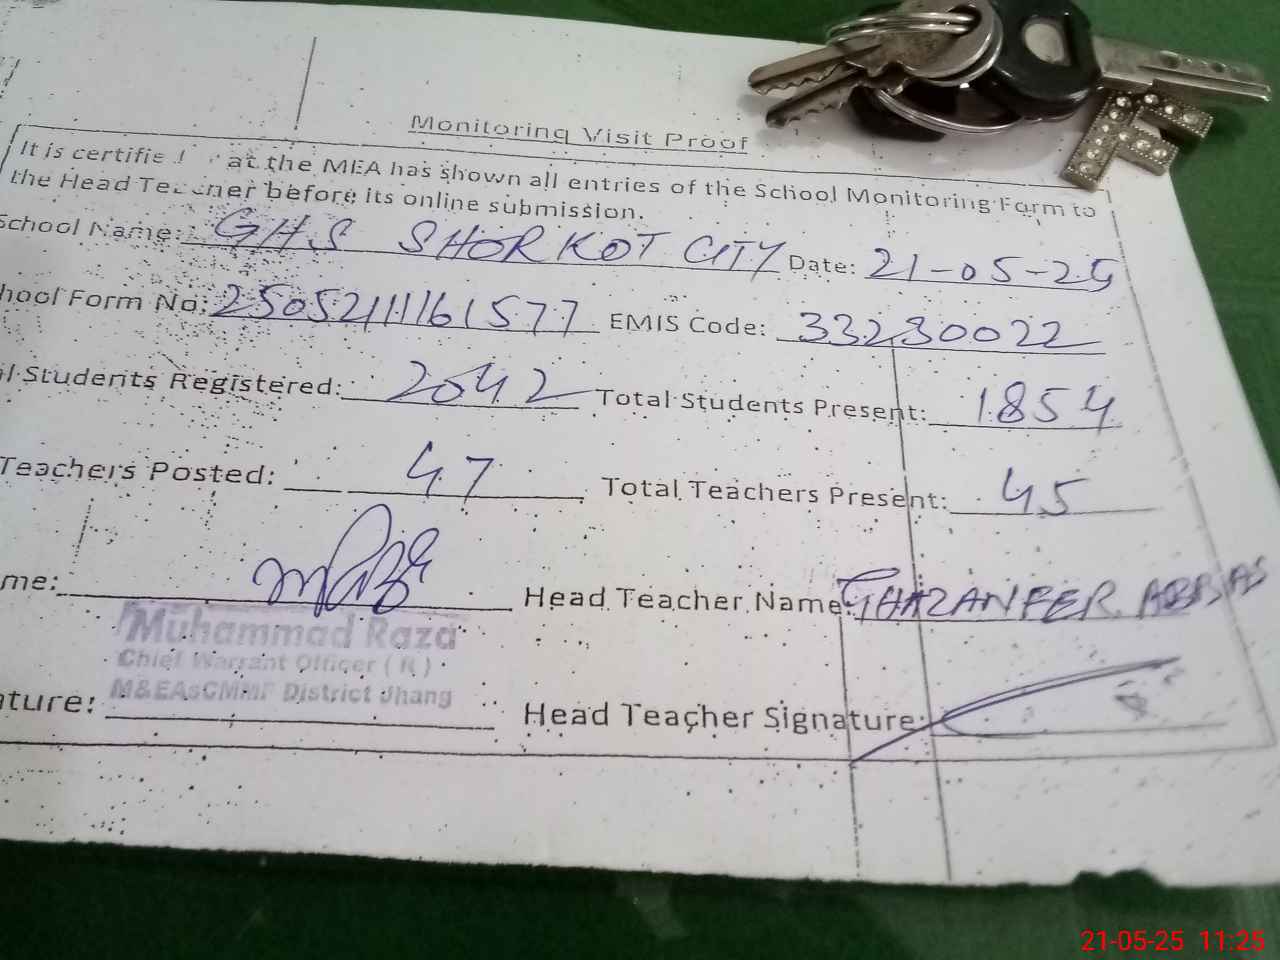 Monitoring Visit Proof
It is certifie at the MEA has shown all entries of the School Monitoring Form to
the Head Teacher before its online submission.
School Name: GHS SHORKOT CITY Date: 21-05-25
hool Form No: 2505211161577 EMIS Code: 33230022
al Students Registered: 2042 Total Students Present: 1854
Teachers Posted: 47 Total Teachers Present: 45
me: Head Teacher Name: GHAZANFER ABBAS
Muhammad Raza
Chief Warrant Officer (R)
M&EAsCMMF District Jhang
ature: Head Teacher Signature:
21-05-25 11:25